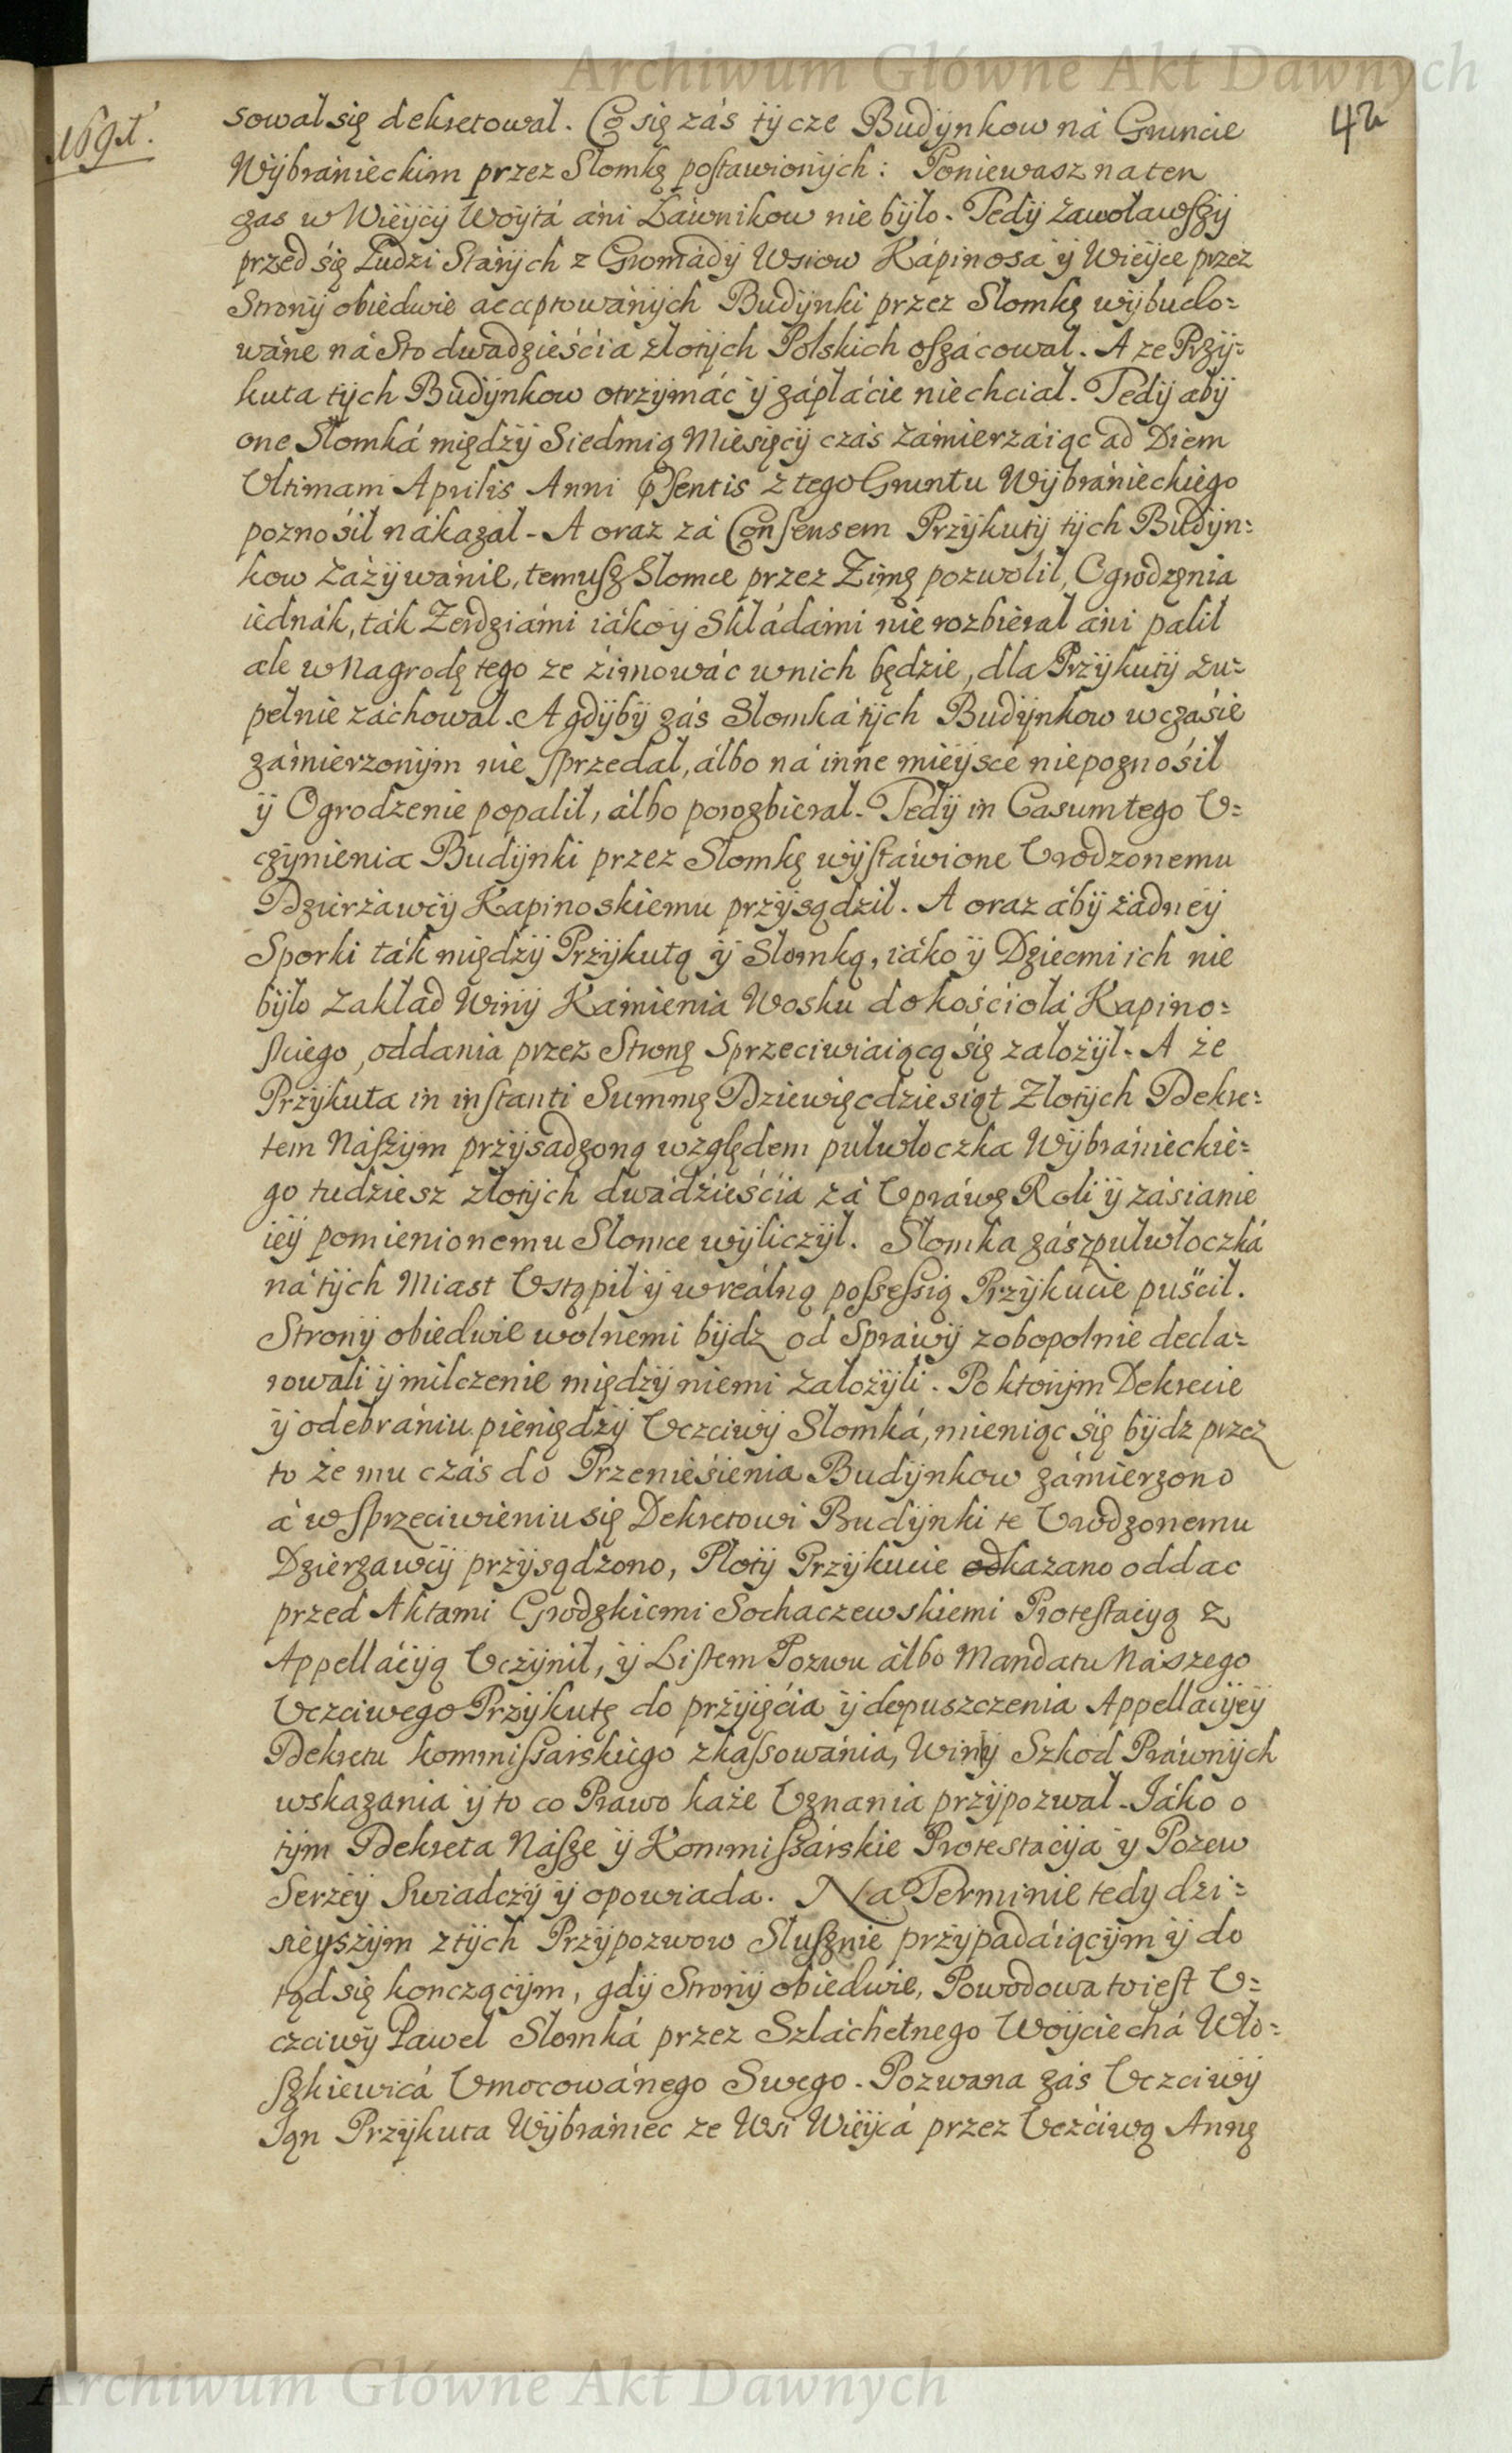 Archiwum Główne Akt Dawnych
42
1691.
sowal się dekretowal. Co się zás tycze Budynkow ná Gruncie
Wybránieckim przez Slomkę postawionych: Poniewasz na ten
czas w Wieycy Woytá áni Ławnikow nie było. Tedy zawoławszy
przed się Ludzi Stárych z Gromády Wsiow Kápinosá y Wieyce przez
Strony obiedwie acceptowánych Budynki przez Slomkę wybudo-
wáne ná Sto dwadzieściá złotych Polskich oszácował. A ze Przy-
kuta tych Budynkow otrzymáć y zápłácić niechciał. Tedy aby
one Slomká między Siedmią Miesięcy czás zámierzáiąc ad Diem
Vltimam Aprilis Anni Psentis z tego Gruntu Wybránieckiego
poznośił nákazał - A oraz zá Consensem Przykuty tych Budyn-
kow záżywánie, temusz Slomce przez Zimę pozwolił, Ogrodzęnia
iednák, ták Zerdziámi iáko y Skłádámi nie rozbierał áni palił
ale w nagrodę tego ze źimowáć w nich będzie, dla Przykuty zu-
pełnie záchował. A gdyby zás Slomká tych Budynkow w czásie
zámierzonym nie sprzedał, álbo ná inne mieysce niepoznośił
y Ogrodzenie popalił, álbo porozbierał. Tedy in Casum tego V-
czynienia Budynki przez Slomkę wystáwione Vrodzonemu
Dzierżawcy Kapinoskiemu przysądził. A oraz áby żádney
Sporki ták między Przykutą y Slomką, iáko y Dziecmi ich nie
było zakład Winy Kámieniá Wosku do kościołá Kapino-
skiego, oddania przez Stronę Sprzeciwiaiącą się założył. A że
Przykuta in instanti Summę Dziewięcdziesiąt Złotych Dekre-
tem Nászym przysadzoną względem pułwłoczka Wybránieckie-
go tudziesz złotych dwádzieściá zá Vpráwę Roli y zásianie
iey pomienionemu Slomce wyliczył. Slomka zás z pułwłoczká
ná tych Miast Vstąpił y w reálną possessią Przykucie puśćił.
Strony obiedwie wolnemi bydz od Spráwy zobopolnie decla-
rowali y milczenie między niemi założyli. Po ktorym Dekrecie
y odebrániu pieniędzy Vczciwy Slomká, mieniąc się bydz przez
to że mu czás do Przenieśienia Budynkow zámierzono
á w sprzeciwieniu się Dekretowi Budynki te Vrodzonemu
Dzierzawcy przysądzono, Płoty Przykucie kazano oddac
przed Aktami Grodzkiemi Sochaczewskiemi Protestacyą z
Appellácyą Vczynił, y Listem Pozwu álbo Mandatu Nászego
Vczciwego Przykutę do przyięćia y dopuszczenia Appellacyey
Dekretu kommissarskiego zkassowánia, Winy Szkod Práwnych
wskazania y to co Prawo każe Vznania przypozwał. Iáko o
tym Dekreta Násze y Kommissárskie Protestacyja y Pozew
Serzey Swiadczy y opowiada. Na Terminie tedy dzi-
sieyszym z tych Przypozwow Słusznie przypadáiącym y do
tąd się konczącym, gdy Strony obiedwie, Powodowa to iest V-
czciwy Páweł Slomká przez Szlachetnego Woyciechá Wło-
szkiewicá Vmocowánego Swego. Pozwana zás Vczciwy
Ián Przykuta Wybrániec ze Wsi Wieycá przez Vczćiwą Annę
Archiwum Główne Akt Dawnych